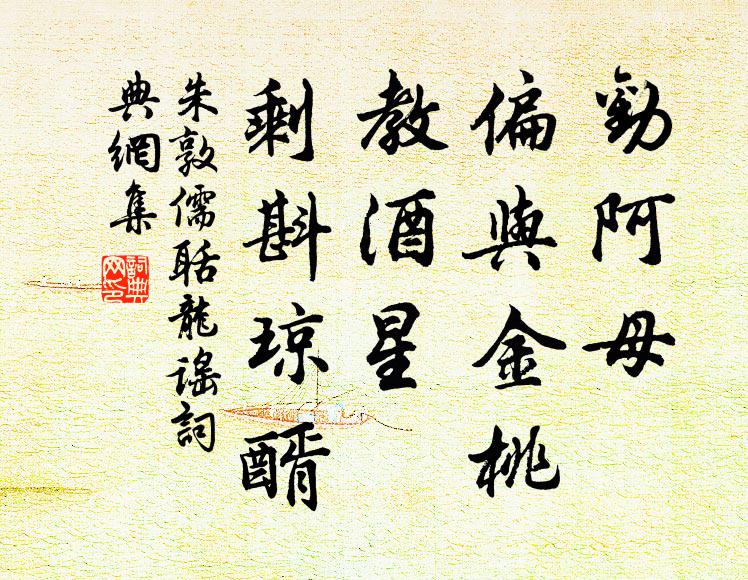 勸阿母
偏與金桃
教酒星
剩斟琼醑
朱敦儒聒龍謠詞
典網集
詞典网印